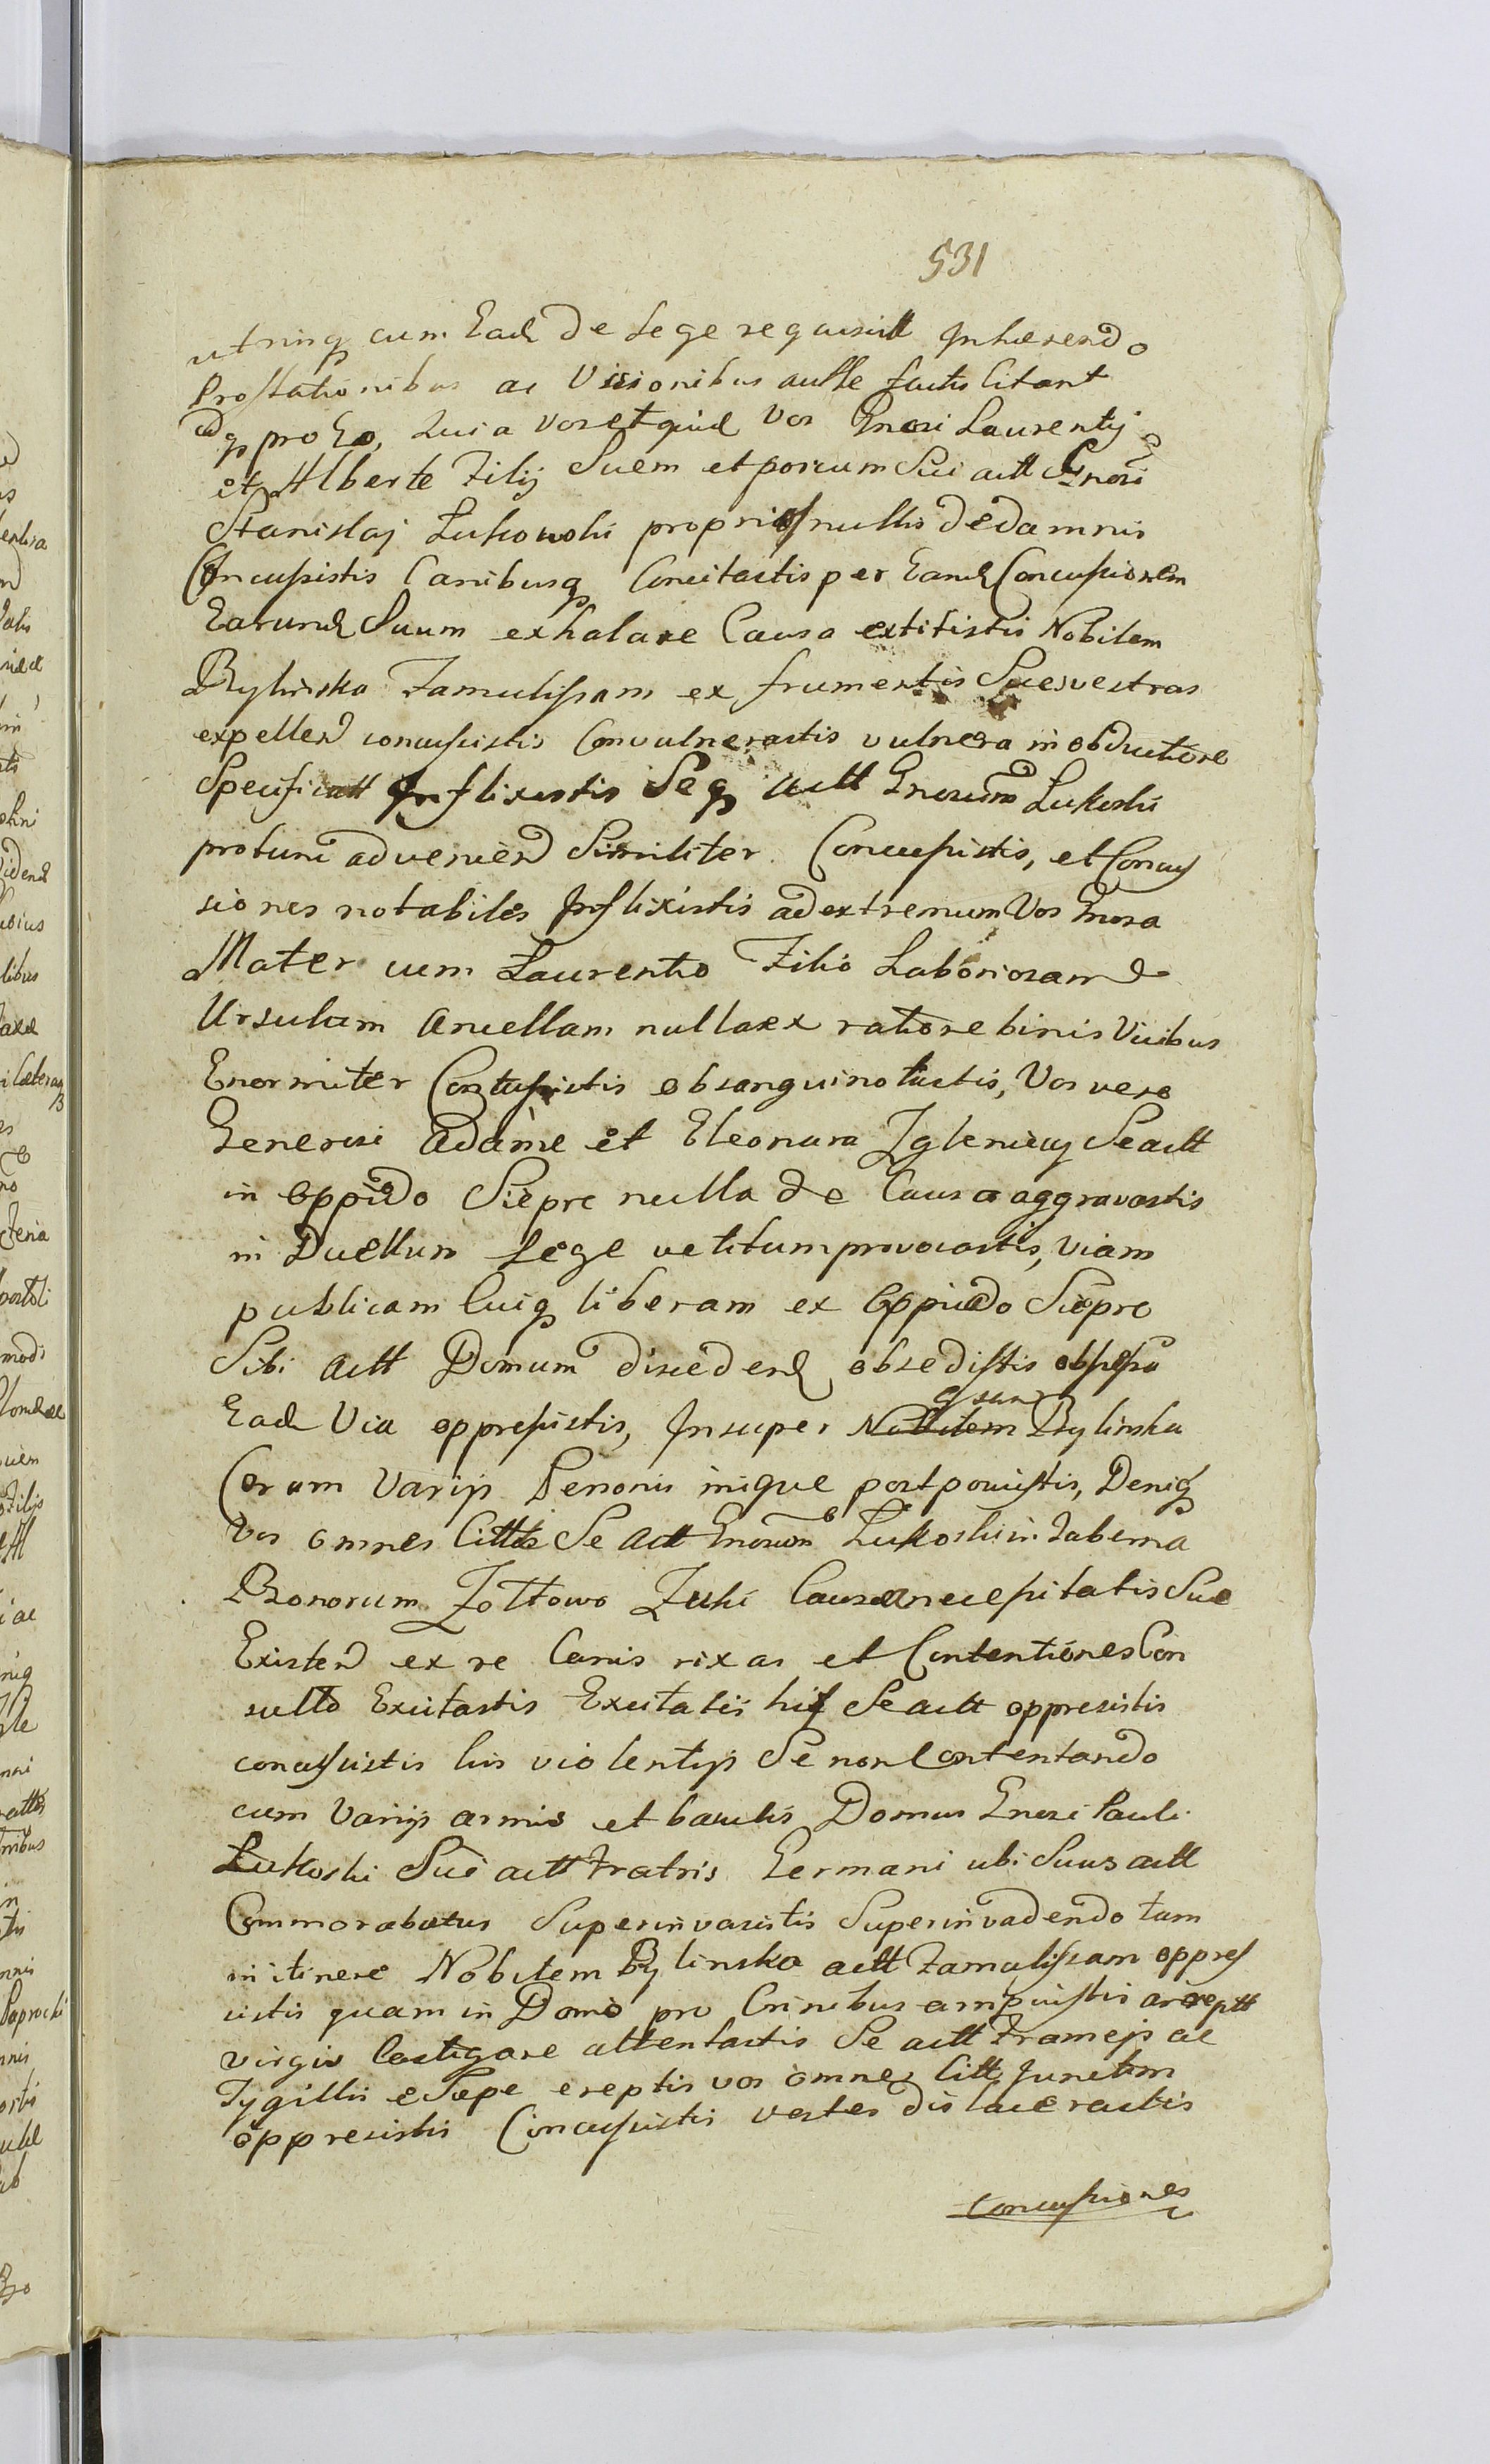 531
utrinq cum Ead De Lege requisitt Inhaerendo
Prostationibus ac Visionibus autte factis Citant
adq pro Eo, Quia Vos et quid Vos Gnosi Laurenty
et Alberte Filij Suem et porcum Sui actt Gnosi
Stanislaj Lukowski proprios nullis de damnis
Concussistis Canibusq Concitastis per Eand Concussionem
Earund Suum exhalare Causa extitistis Nobilem
Bylinska Famulissam ex frumentis Sues vestras
expellend concussistis Convulnerastis vulnera in obductione
Specificatt Inflixistis Seq actt Gnosum Lukoski
protunc adveniend Similiter Concussistis, et Concus
siones notabiles Inflixistis ad extremum Vos Gnosa
Mater cum Laurentio Filio Laboriosam
Ursulam Ancellam nulla ex ratione binis Vicibus
Enormiter Contussistis obsanguinolastis, Vos vero
Generosi Adame et Eleonara Iglenicy Se actt
in Oppido Siepre nulla de Causa aggravastis
in Duellum Lege vetitum provocastis, Viam
publicam Cuiq liberam ex Oppido Siepre
Sibi actt Domum discedend obsedistis obsessa
Ead Via oppressistis, Insuper Nobilem Gsam Bylinska
Coram Varijs Personis inique postposuistis, Deniq
Vos omnes Citti Se Actt Gnosum Lukoski in Taberna
Bonorum Zoltowo Zuki Causa necessitatis Sue
Existend ex re Canis rixas et Contentiones Con
sulto Excitastis Excitatis his Se actt oppresistis
concussistis his violentijs Se non Contentando
cum Varijs armis et baculis Domus Gnosi Pauli
Lukoski Sui actt Fratris Germani ubi Suus actt
Commorabatus Superinvasistis Superinvadendo tam
in itinere Nobilem Bylinska actt Famulissam oppres
sistis quam in Domo pro Crinibus ampuistis arreptt
virgis Castigare attentastis Se actt Frameis ac
Tygillis e Sepe ereptis vos omnes Citt Junctim
oppresistis Concussistis vestes dislacerastis
Concussiones